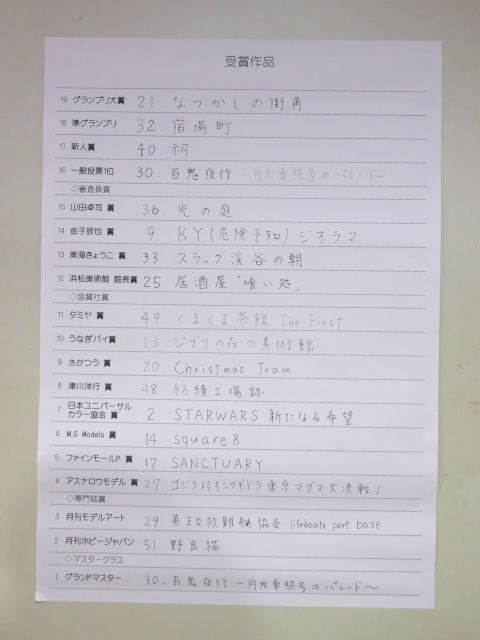 受賞作品
19 グランプリ大賞 21. なつかしの街角
18 準グランプリ 32. 宿場町
17 新人賞 40. 祠
16 一般投票1位 30. 百鬼夜行 ～月光東照号のパレード～
◇審査員賞
15 山田卓司 賞 36 光の庭
14 金子辰也 賞 9 KY(危険予知)ジオラマ
13 美海きょうこ 賞 33 スラッグ渓谷の朝
12 浜松美術館 館長賞 25 居酒屋「喰い処」
◇協賛社賞
11 タミヤ 賞 49 くまくま茶館 The First
10 うなぎパイ賞 13 ジブリの森の美術館
9 さかつう 賞 20 Christmas Tram
8 津川洋行 賞 48 紡績工場跡
7 日本ユニバーサル
カラー協会 賞 2 STARWARS 新たなる希望
6 M.S Models 賞 14 square8
5 ファインモールド 賞 17 SANCTUARY
4 アスナロウモデル 賞 27 ゴジラ対キングギドラ東京マグマ大決戦!
◇専門誌賞
3 月刊モデルアート 29 英王立救難艇協会 lifeboats port base
2 月刊ホビージャパン 51 野良猫
◇マスタークラス
1 グランドマスター 30. 百鬼夜行 ～月光東照号のパレード～